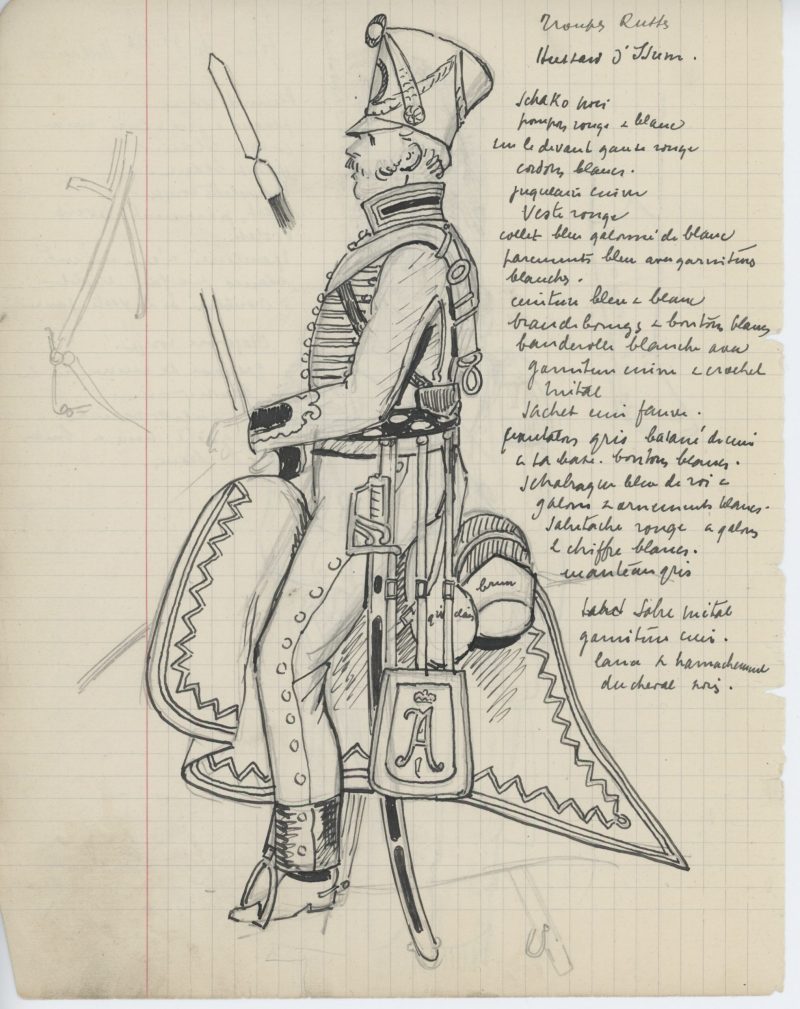 Troupes Russes
Hussard d'Isum.
Schako noir
pompon rouge & blanc
sur le devant ganse rouge
cordons blancs.
jugulaire cuivre
Veste rouge
collet bleu galonné de blanc
parements bleu avec garnitures
blanches.
ceinture bleu & blanc
brandebourgs & boutons blancs
banderolle blanche avec
garniture cuivre & crochet
métal
Sachet cuir fauve.
pantalons gris basané de cuir
a la base. boutons blancs.
Schabraque bleu de roi &
galons & ornements blancs.
Sabretache rouge & galons
& chiffre blancs.
manteau gris
Sabre métal
garniture cuir.
lance & harnachement
du cheval noir.
brun
gris clair
A
I